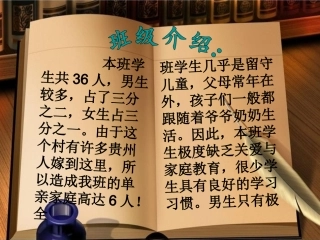 班级介绍
本班学
生共36人，男生
较多，占了三分
之二，女生占三
分之一。由于这
个村有许多贵州
人嫁到这里，所
以造成我班的单
亲家庭高达6人！
全
班学生几乎是留守
儿童，父母常年在
外，孩子们一般都
跟随着爷爷奶奶生
活。因此，本班学
生极度缺乏关爱与
家庭教育，很少学
生具有良好的学习
习惯。男生只有极